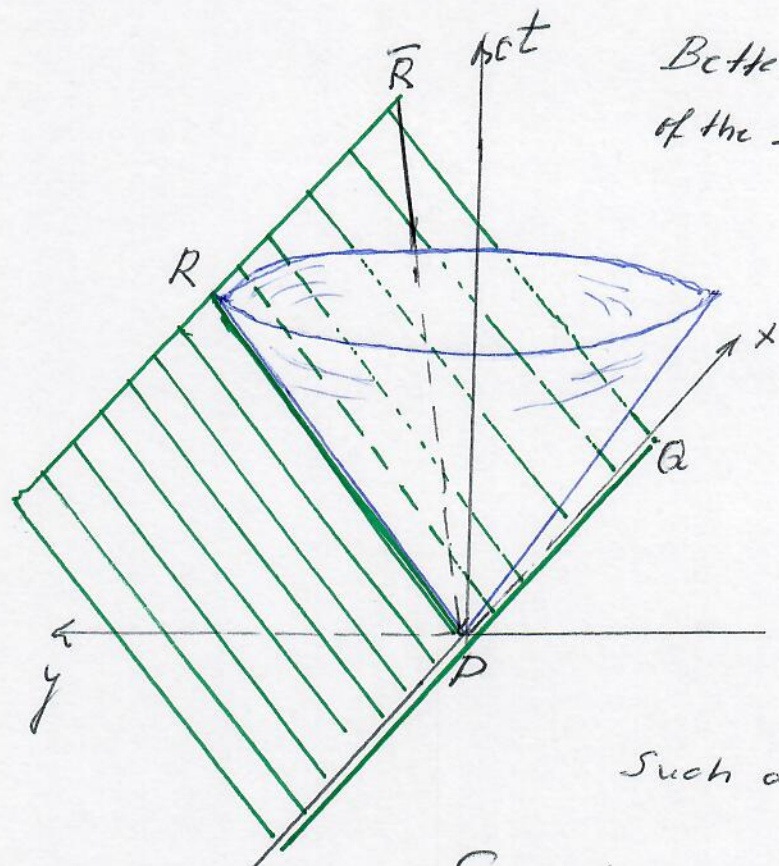 R̄
ct
Bette
of the
R
x
Q
y
P
Such a